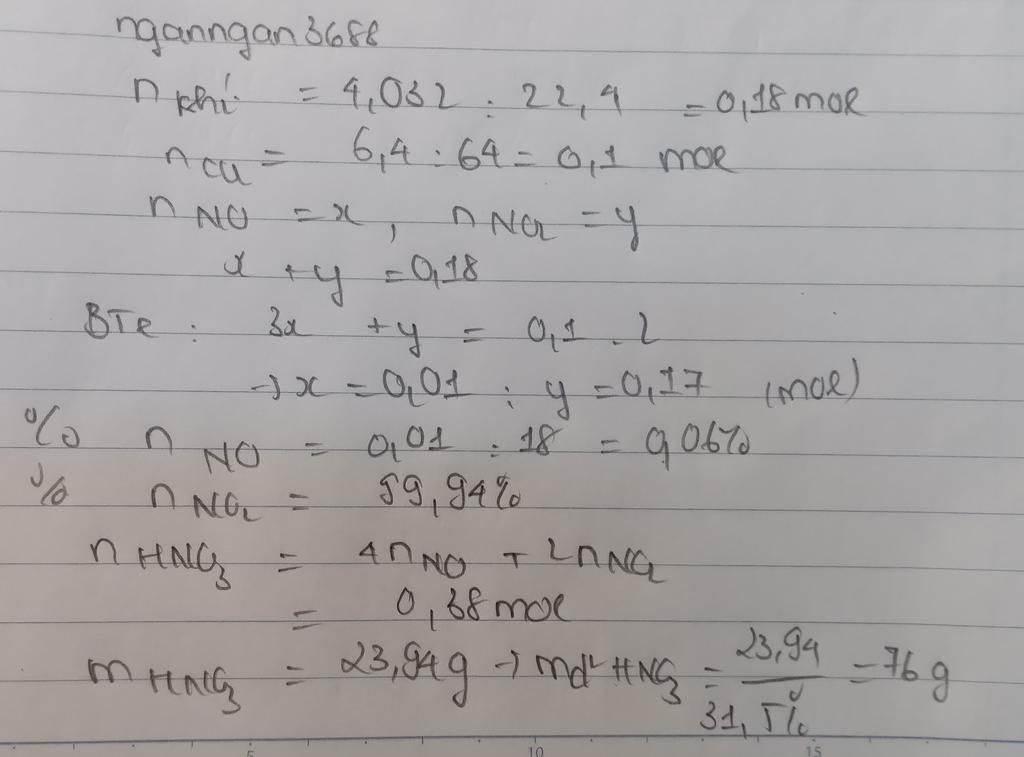 nganngan3688
n khí = 4,032 : 22,4 = 0,18 mol
n Cu = 6,4 : 64 = 0,1 mol
n NO = x, n NO2 = y
x + y = 0,18
BTe : 3x + y = 0,1 . 2
→ x = 0,01 ; y = 0,17 (mol)
% n NO = 0,01 : 18 = 0,06%
% n NO2 = 59,94%
n HNO3 = 4n NO + 2n NO2
= 0,38 mol
m HNO3 = 23,94g → md² HNO3 = 23,94 / 31,5% = 76g
5 10 15